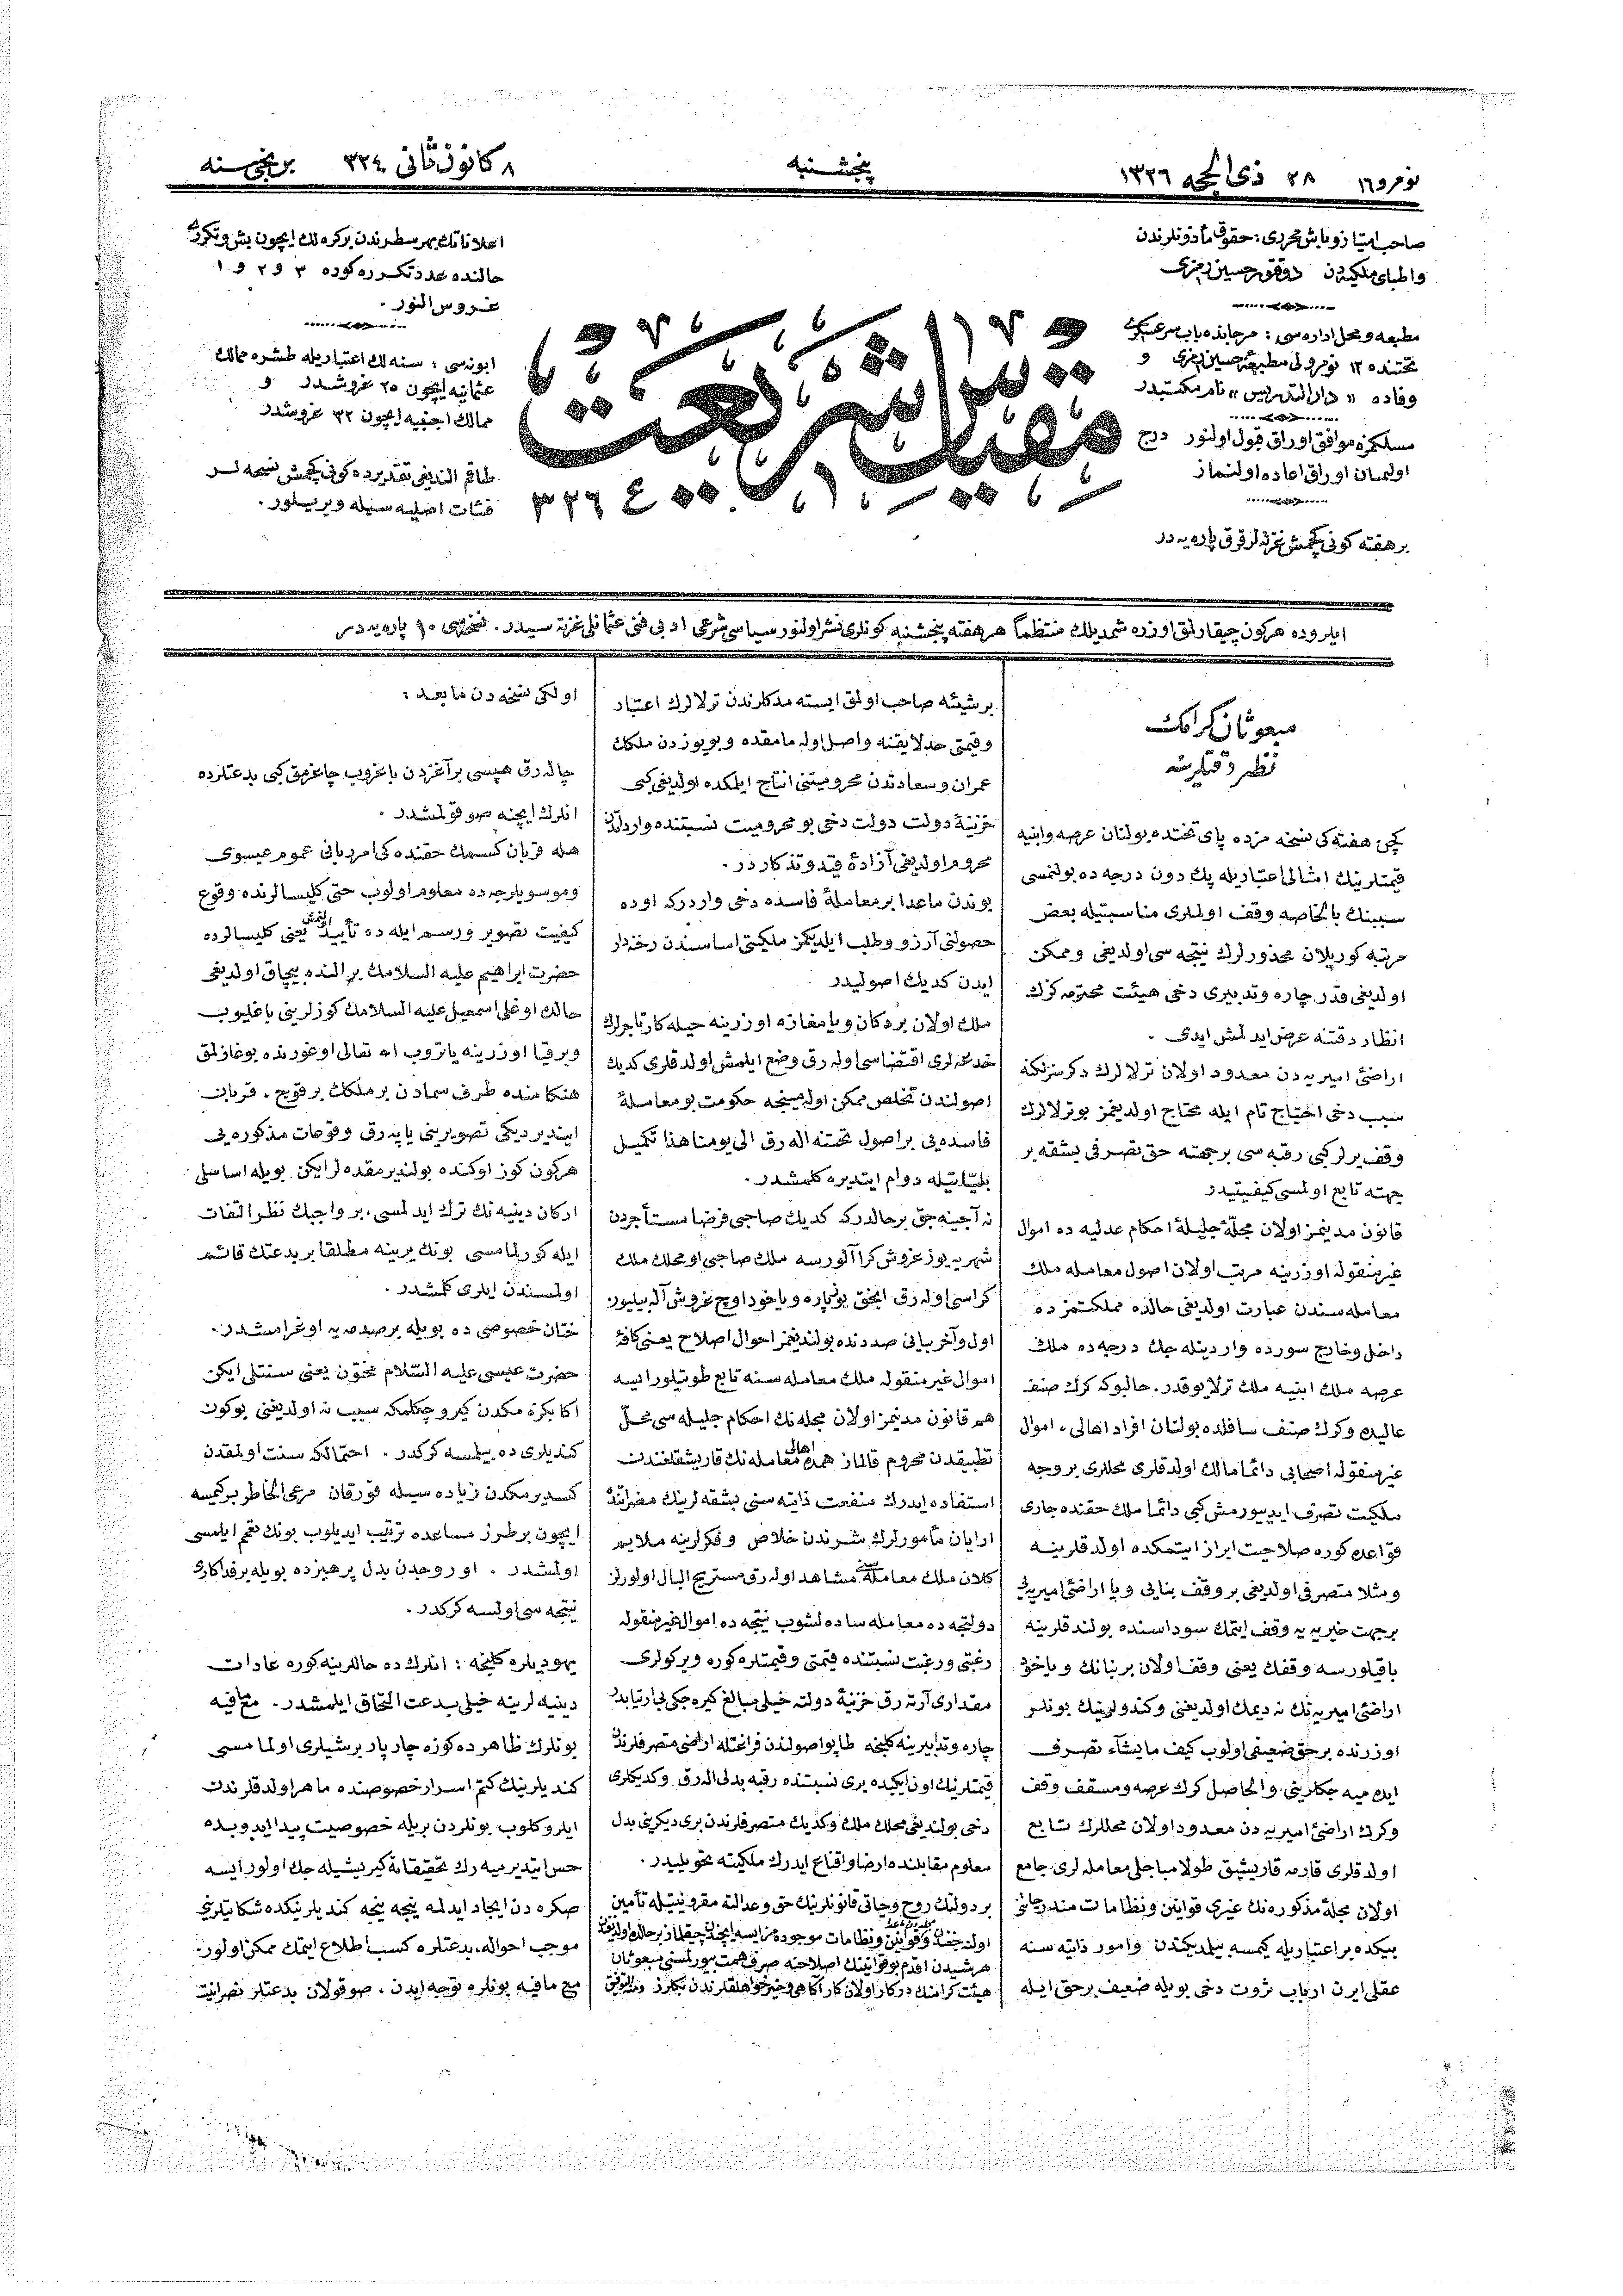 نومرو ١٦ ٢٨ ذی الحجه ١٣٢٦
پنجشنبه
٨ كانون ثانی ٣٢٤ برنجی سنه
صاحب امتیاز و باش محرری : حقوق مأذونلرندن
و اطبای ملكیه دن دوقتور حسین رمزی
مطبعه و محل اداره سی : مرجانده باب سر عسكری
تحتنده ١٢ نومرولی مطبعۀ حسین رمزی و
وفاده « دار التدریس » نام مكتبدر
مسلكمزه موافق اوراق قبول اولنور درج
اولنمیان اوراق اعاده اولنماز
بر هفته كونی كچمش غزته لر قرق پاره یه در
مقیاس شریعت
٣٢٦
اعلاناتك بهر سطرندن بر كره لك ایچون بش و تكرری
حالنده عدد تكرره كوره ٣ و ٢ و ١
غروس النور .
ابونه سی : سنه لك اعتباریله طشره ممالك
عثمانیه ایچون ٢٥ غروشدر و
ممالك اجنبیه ایچون ٣٢ غروشدر
طاقم الندیغی تقدیرده كونی كچمش نسخه لر
فئات اصلیه سیله ویریلور .
ایلروده هر كون چیقارلمق اوزره شمدیلك منتظماً هر هفته پنجشنبه كونلری نشر اولنور سیاسی شرعی ادبی فنی عثمانلی غزته سیدر . نسخه سی ١٠ پاره یه در
مبعوثان كرامك
نظر دقتلرینه
كچن هفته كی نسخه مزده پای تختده بولنان عرصه و ابنیه
قیمتلرینك امثالی اعتباریله پك دون درجه ده بولنمسی
سببنك بالخاصه وقف اولملری مناسبتیله بعض
مرتبه كوریلان محذورلرك نتیجه سی اولدیغی و ممكن
اولدیغی قدر چاره و تدبیری دخی هیئت محترمه كزك
انظار دقتنه عرض ایدلمش ایدی .
اراضئ امیریه دن معدود اولان ترلالرك دكرسزلكنه
سبب دخی احتیاج تام ایله محتاج اولدیغمز بو ترلالرك
وقف یرلر كبی رقبه سی بر جهته حق تصرفی بشقه بر
جهته تابع اولمسی كیفیتیدر
قانون مدنیمز اولان مجلۀ جلیلۀ احكام عدلیه ده اموال
غیر منقوله اوزرینه مرتب اولان اصول معامله ملك
معامله سندن عبارت اولدیغی حالده مملكتمزده
داخل و خارج سورده وار دینله جك درجه ده ملك
عرصه ملك ابنیه ملك ترلا یوقدر . حالبوكه كرك صنف
عالیده و كرك صنف سافلده بولنان افراد اهالی ، اموال
غیر منقوله اصحابی دائما مالك اولدقلری محللری بر وجه
ملكیت تصرف ایدییورمش كبی دائما ملك حقنده جاری
قواعده كوره صلاحیت ابراز ایتمكده اولدقلرینه
و مثلا متصرفی اولدیغی بر وقف بنایی و یا اراضئ امیریه یی
بر جهت خیریه یه وقف ایتمك سوداسنده بولندقلرینه
باقیلورسه وقفك یعنی وقف اولان بر بنانك و یاخود
اراضئ امیریه نك نه دیمك اولدیغنی و كندولرینك بونلر
اوزرنده بر حق ضعیفی اولوب كیف ما یشآء تصرف
ایده میه جكلرینی و الحاصل كرك عرصه و مسقف وقف
و كرك اراضئ امیریه دن معدود اولان محللرك تابع
اولدقلری قارمه قاریشیق طولامباجلی معامله لری جامع
اولان مجلۀ مذكوره نك غیری قوانین و نظامات مندرجاتنی
بیكده بر اعتباریله كیمسه بیلمدیكندن و امور ذاتیه سنه
عقلی ایرن ارباب ثروت دخی بویله ضعیف بر حق ایله
بر شیئه صاحب اولمق ایسته مدكلرندن ترلالرك اعتبار
و قیمتی حد لایقنه واصل اوله مامقده و بو یوزدن ملكك
عمران و سعادتدن محرومیتنی انتاج ایلمكده اولدیغی كبی
خزینۀ دولت دخی بو محرومیت نسبتنده وارداتدن
محروم اولدیغی آزادۀ قید و تذكاردر .
بوندن ماعدا بر معاملۀ فاسده دخی واردركه اوده
حصولنی آرزو و طلب ایلدیكمز ملكیتی اساسندن رخنه دار
ایدن كدیك اصولیدر
ملك اولان بر دكان و یا مغازه اوزرینه حیله كار تاجرلرك
خدعه لری اقتضاسی اوله رق وضع ایلمش اولدقلری كدیك
اصولندن تخلص ممكن اوله مینجه حكومت بو معاملۀ
فاسده یی بر اصول تحتنه اله رق الی یومنا هذا تكمیل
بلیاتیله دوام ایتدیره كلمشدر .
نه آجینه جق بر حالدركه كدیك صاحبی فرضا مستأجردن
شهریه یوز غروش كرا آلورسه ملك صاحبی او محلك ملك
كراسی اوله رق انجق یوز پاره و یاخود اوچ غروش آله بیلیور
اول و آخر بیانی صددنده بولندیغمز احوال اصلاح یعنی كافۀ
اموال غیر منقوله ملك معامله سنه تابع طوتیلور ایسه
هم قانون مدنیمز اولان مجله نك احكام جلیله سی محل
تطبیقدن محروم قالماز همده اهالی معامله نك قاریشقلغندن
استفاده ایدرك منفعت ذاتیه سنی بشقه لرینك مضراتنده
ارایان مأمورلرك شرندن خلاص و فكرلرینه ملایم
كلان ملك معامله سنی مشاهد اوله رق مستریح البال اولورلر
دولتجه ده معامله ساده لشوب نتیجه ده اموال غیر منقوله
رغبتی و رغبت نسبتنده قیمتی و قیمتلره كوره ویركولری
مقداری آرته رق خزینۀ دولته خیلی مبالغ كیره جكی بی ارتیابدر
چاره و تدابیرینه كلنجه طاپو اصولندن فراغتله اراضی متصرفلرندن
قیمتلرینك اون ایكیده بری نسبتنده رقبه بدلی اله رق و كدیكلری
دخی بولندیغی محلك ملك و كدیك متصرفلرندن بری دیكرینی بدل
معلوم مقابلنده ارضا و اقناع ایدرك ملكیته تحویلیدر .
بر دولتك روح و حیاتی قانونلرینك حق و عدالته مقرونیتیله تأمین
اولنه جغندن و قوانین و نظامات موجوده مز ایسه ایچندن چیقلماز بر حالده اولدیغندن
هر شیدن اقدم بو قوانینك اصلاحنه صرف همت بیورلمسنی مبعوثان
هیئت كرامنك دركار اولان كار آكاهی و خیر خواهلقلرندن بكلرز و من الله التوفیق
اولكی نسخه دن ما بعد :
چاله رق هپسی بر آغزدن باغروب چاغرمق كبی بدعتلرده
انلرك ایچنه صوقولمشدر .
هله قربان كسمك حقنده كی امر ربانی عموم عیسوی
و موسویلرجه ده معلوم اولوب حتی كلیسالرنده وقوع
كیفیت تصویر و رسم ایله ده تأیید اتمش یعنی كلیسالرده
حضرت ابراهیم علیه السلامك بر النده بیچاق اولدیغی
حالده اوغلی اسمعیل علیه السلامك كوزلرینی باغلیوب
و بر قیا اوزرینه یاتروب الله تعالی اوغورنده بوغازلمق
هنكامنده طرف سمادن بر ملكك بر قویج ، قربان
ایندیردیكی تصویرینی یاپه رق وقوعات مذكوره یی
هر كون كوز اوكنده بولندیرمقده لر ایكن بویله اساسلی
اركان دینیه نك ترك ایدلمسی ، بر واجبك نظر التفات
ایله كورلمامسی بونك یرینه مطلقا بر بدعتك قائم
اولمسندن ایلری كلمشدر .
ختان خصوصی ده بویله بر صدمه یه اوغرامشدر .
حضرت عیسی علیه السلام مختون یعنی سنتلی ایكن
اكا بكزه مكدن كیرو چكلمكه سبب نه اولدیغنی بوكون
كندیلری ده بیلمسه كركدر . احتمالكه سنت اولمقدن
كسدیرمكدن زیاده سیله قورقان مرعی الخاطر بر كیمسه
ایچون بر طرز مساعده ترتیب ایدیلوب بونك تعمم ایلمسی
اولمشدر . اوروجدن بدل پرهیزده بویله بر فداكاری
نتیجه سی اولسه كركدر .
یهودیلره كلنجه : انلرك ده حاللرینه كوره عادات
دینیه لرینه خیلی بدعت التحاق ایلمشدر . مع مافیه
بونلرك ظاهرده كوزه چارپار بر شیلری اولمامسی
كندیلرینك كتم اسرار خصوصنده ماهر اولدقلرندن
ایلرو كلوب بونلردن بریله خصوصیت پیدا ایدوبده
حس ایتدیرمیه رك تحقیقاته كیریشیله جك اولور ایسه
صكره دن ایجاد ایدلمه ینجه ینجه كندیلرینكده شكایتلرینی
موجب احواله ، بدعتلره كسب اطلاع ایتمك ممكن اولور .
مع مافیه بونلره توجه ایدن ، صوقولان بدعتلر نصرانیت